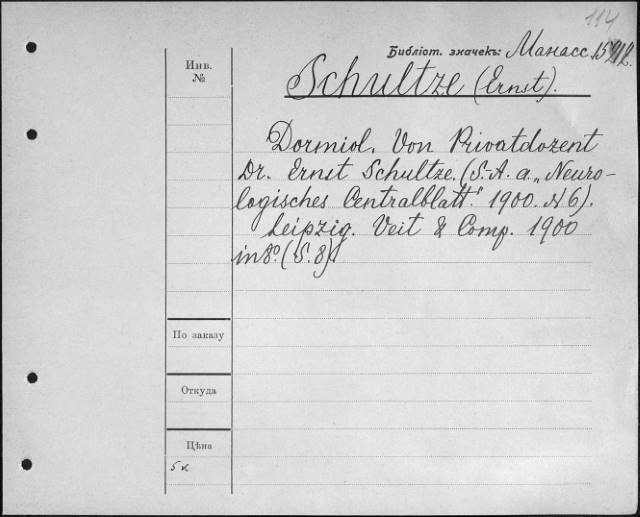 114
Библіот. значекъ: Манасс.
Инв.
№
Schultze (Ernst).
Dormiol. Von Privatdozent
Dr. Ernst Schultze. (S.-A. a. „Neuro-
logisches Centralblatt." 1900. №6).
Leipzig. Veit & Comp. 1900
in 8°. (S. 8)
По заказу
Откуда
Цѣна
5 к